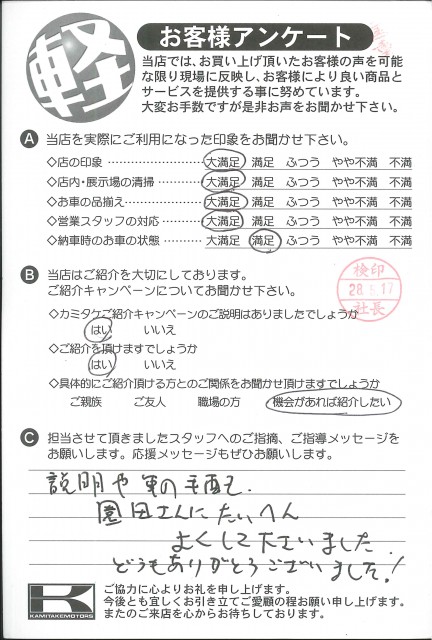 軽
お客様アンケート
当店では、お買い上げ頂いたお客様の声を可能
な限り現場に反映し、お客様により良い商品と
サービスを提供する事に努めています。
大変お手数ですが是非お声をお聞かせ下さい。
A 当店を実際にご利用になった印象をお聞かせ下さい。
◇店の印象 ………………… 大満足 満足 ふつう やや不満 不満
◇店内・展示場の清掃………… 大満足 満足 ふつう やや不満 不満
◇お車の品揃え……………… 大満足 満足 ふつう やや不満 不満
◇営業スタッフの対応………… 大満足 満足 ふつう やや不満 不満
◇納車時のお車の状態………… 大満足 満足 ふつう やや不満 不満
B 当店はご紹介を大切にしてあります。
ご紹介キャンペーンについてお聞かせ下さい。
検印
28.5.17
社長
◇カミタケご紹介キャンペーンのご説明はありましたでしょうか
はい いいえ
◇ご紹介を頂けますでしょうか
はい いいえ
◇具体的にご紹介頂ける方とのご関係をお聞かせ頂けますでしょうか
ご親族 ご友人 職場の方 機会があれば紹介したい
C 担当させて頂きましたスタッフへのご指摘、ご指導メッセージを
お願いします。応援メッセージもぜひお願いします。
説明や車の手配も、
園田さんにたいへん
よくして下さいました
どうもありがとうございました!
KAMITAKEMOTORS
ご協力に心よりお礼を申し上げます。
今後とも宜しくお引き立てご愛顧の程お願い申し上げます。
またのご来店を心からお待ちしております。